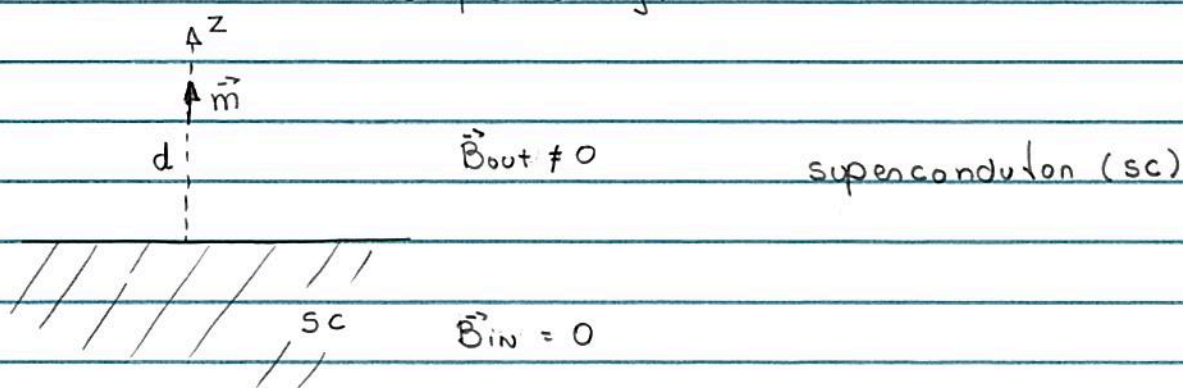 z
m⃗
d
B⃗out ≠ 0
superconduton (sc)
SC
B⃗IN = 0